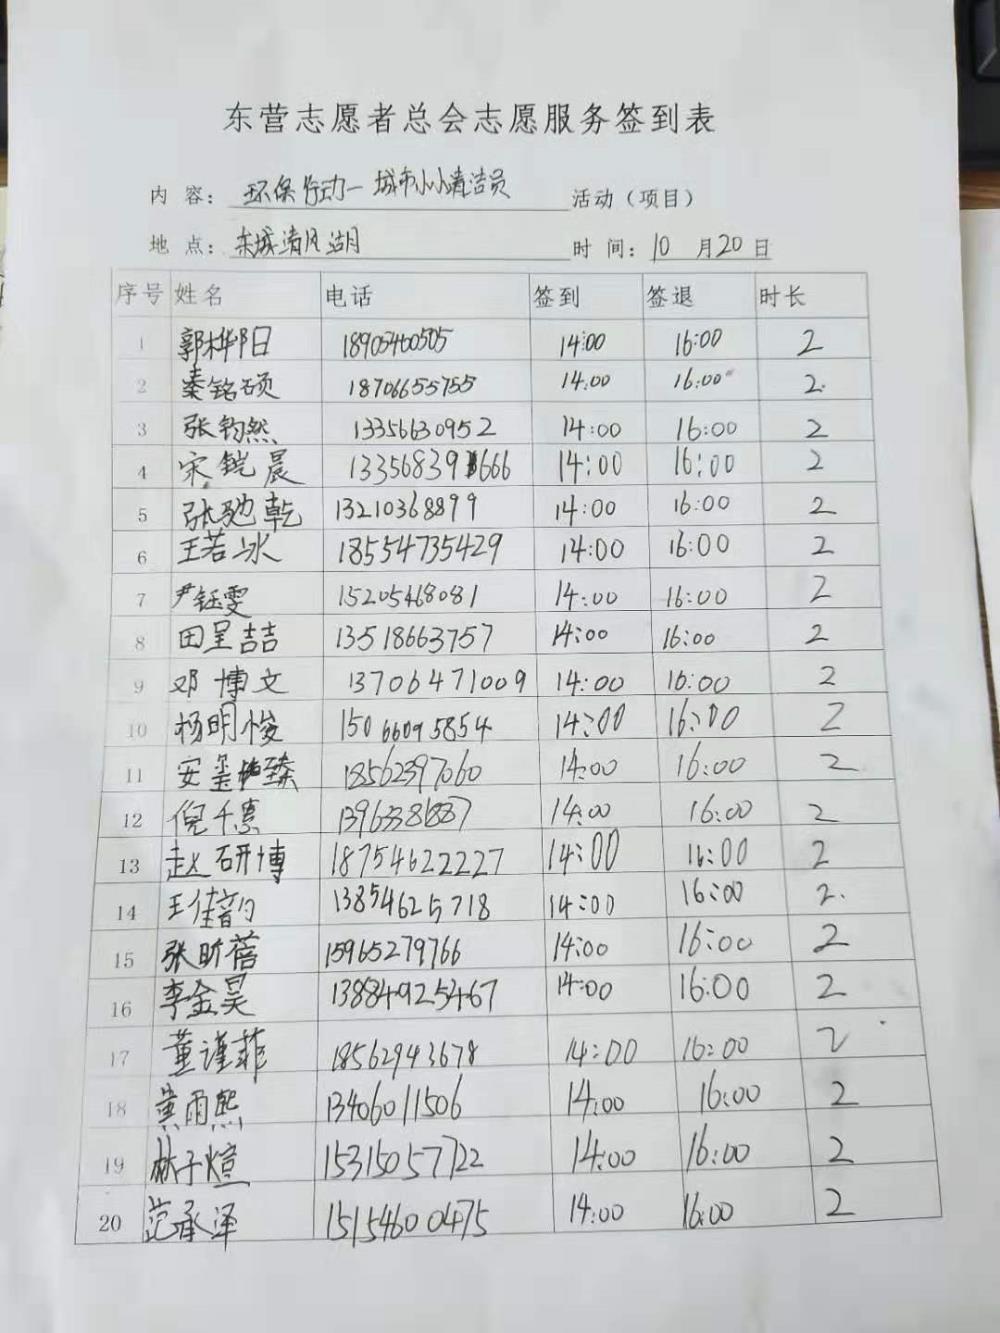 东营志愿者总会志愿服务签到表
内 容: 环保行动—城市小小清洁员 活动(项目)
地 点: 东城清风湖 时 间: 10 月20日
序号 姓名 电话 签到 签退 时长
1 郭桦阳 18905460505 14:00 16:00 2
2 秦铭硕 18706655755 14:00 16:00 2
3 张钧然 13356630952 14:00 16:00 2
4 宋锐晨 13356839666 14:00 16:00 2
5 张驰乾 13210368899 14:00 16:00 2
6 王若冰 18554735429 14:00 16:00 2
7 尹钰雯 15205468081 14:00 16:00 2
8 田呈喆 13518663757 14:00 16:00 2
9 邓博文 13706471009 14:00 16:00 2
10 杨明俊 15066095854 14:00 16:00 2
11 安玺臻 18562397060 14:00 16:00 2
12 倪千惠 14:00 16:00 2
13 赵研博 18754622227 14:00 16:00 2
14 王佳韵 13854625718 14:00 16:00 2
15 张昕蓓 15965279766 14:00 16:00 2
16 李金昊 13884925467 14:00 16:00 2
17 董谨菲 18562943678 14:00 16:00 2
18 黄雨熙 13406011506 14:00 16:00 2
19 林子煊 15315057722 14:00 16:00 2
20 范承泽 15154600475 14:00 16:00 2